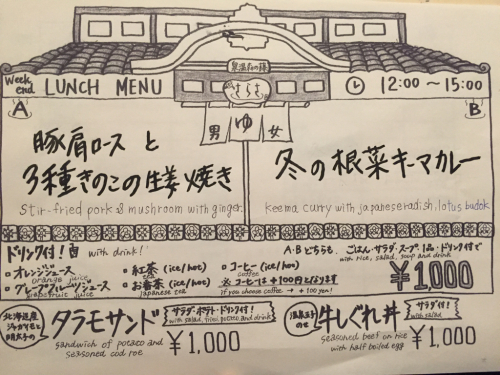 泉温石の郷
さらさ
Week end LUNCH MENU
12:00〜15:00
男 ゆ 女
A
豚肩ロースと
3種きのこの生姜焼き
Stir-fried pork & mushroom with ginger.
B
冬の根菜キーマカレー
keema curry with japanese radish, lotus budok
ドリンク付! with drink!
・オレンジジュース
orange juice
・グレープフルーツジュース
grapefruit juice
・紅茶 (ice/hot)
tea
・お番茶 (ice/hot)
japanese tea
・コーヒー (ice/hot)
coffee
※コーヒーは+100円となります
if you choose coffee → +100yen!
A・Bどちらも、ごはん・サラダ・スープ1品・ドリンク付で
with rice, salad, soup and drink
¥1,000
北海道産
ジャガイモと
明太子の
タラモサンド
サラダ・ポテト・ドリンク付!
with salad, fried potato and drink
sandwich of potato and
seasoned cod roe
¥1,000
温泉玉子
のせ
牛しぐれ丼
サラダ付!
with salad
seasoned beef on rice
with half boiled egg
¥1,000